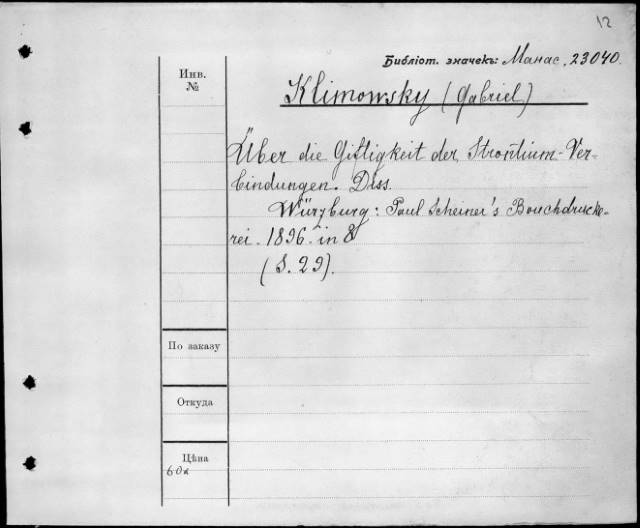 12
Библіот. значекъ: Манас. 23040.
Инв.
№
Klimowsky (Gabriel)
Über die Giftigkeit der Strontium-Ver-
bindungen. Diss.
Würzburg: Paul Scheiner's Bouchdrucke-
rei. 1896. in 8
(S. 29).
По заказу
Откуда
Цѣна
60к